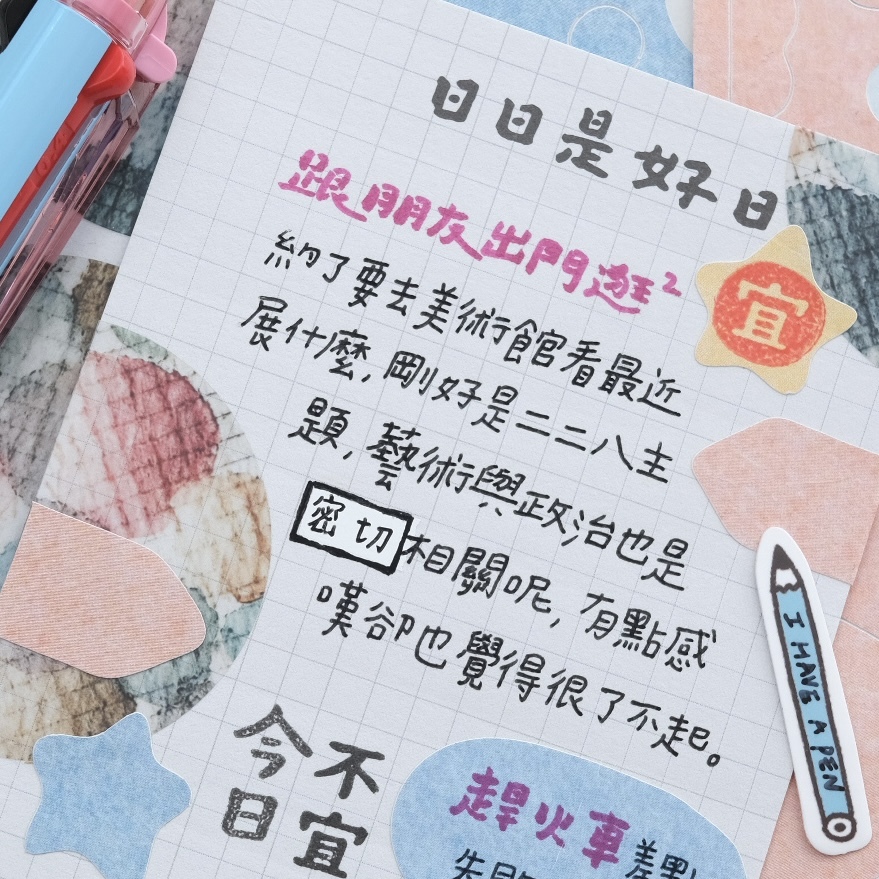 日日是好日
跟朋友出門逛²
宜
約了要去美術館看最近
展什麼,剛好是二二八主
題,藝術與政治也是
密切相關呢,有點感
嘆卻也覺得很了不起。
I HAVE A PEN
今日
不宜
趕火車差點